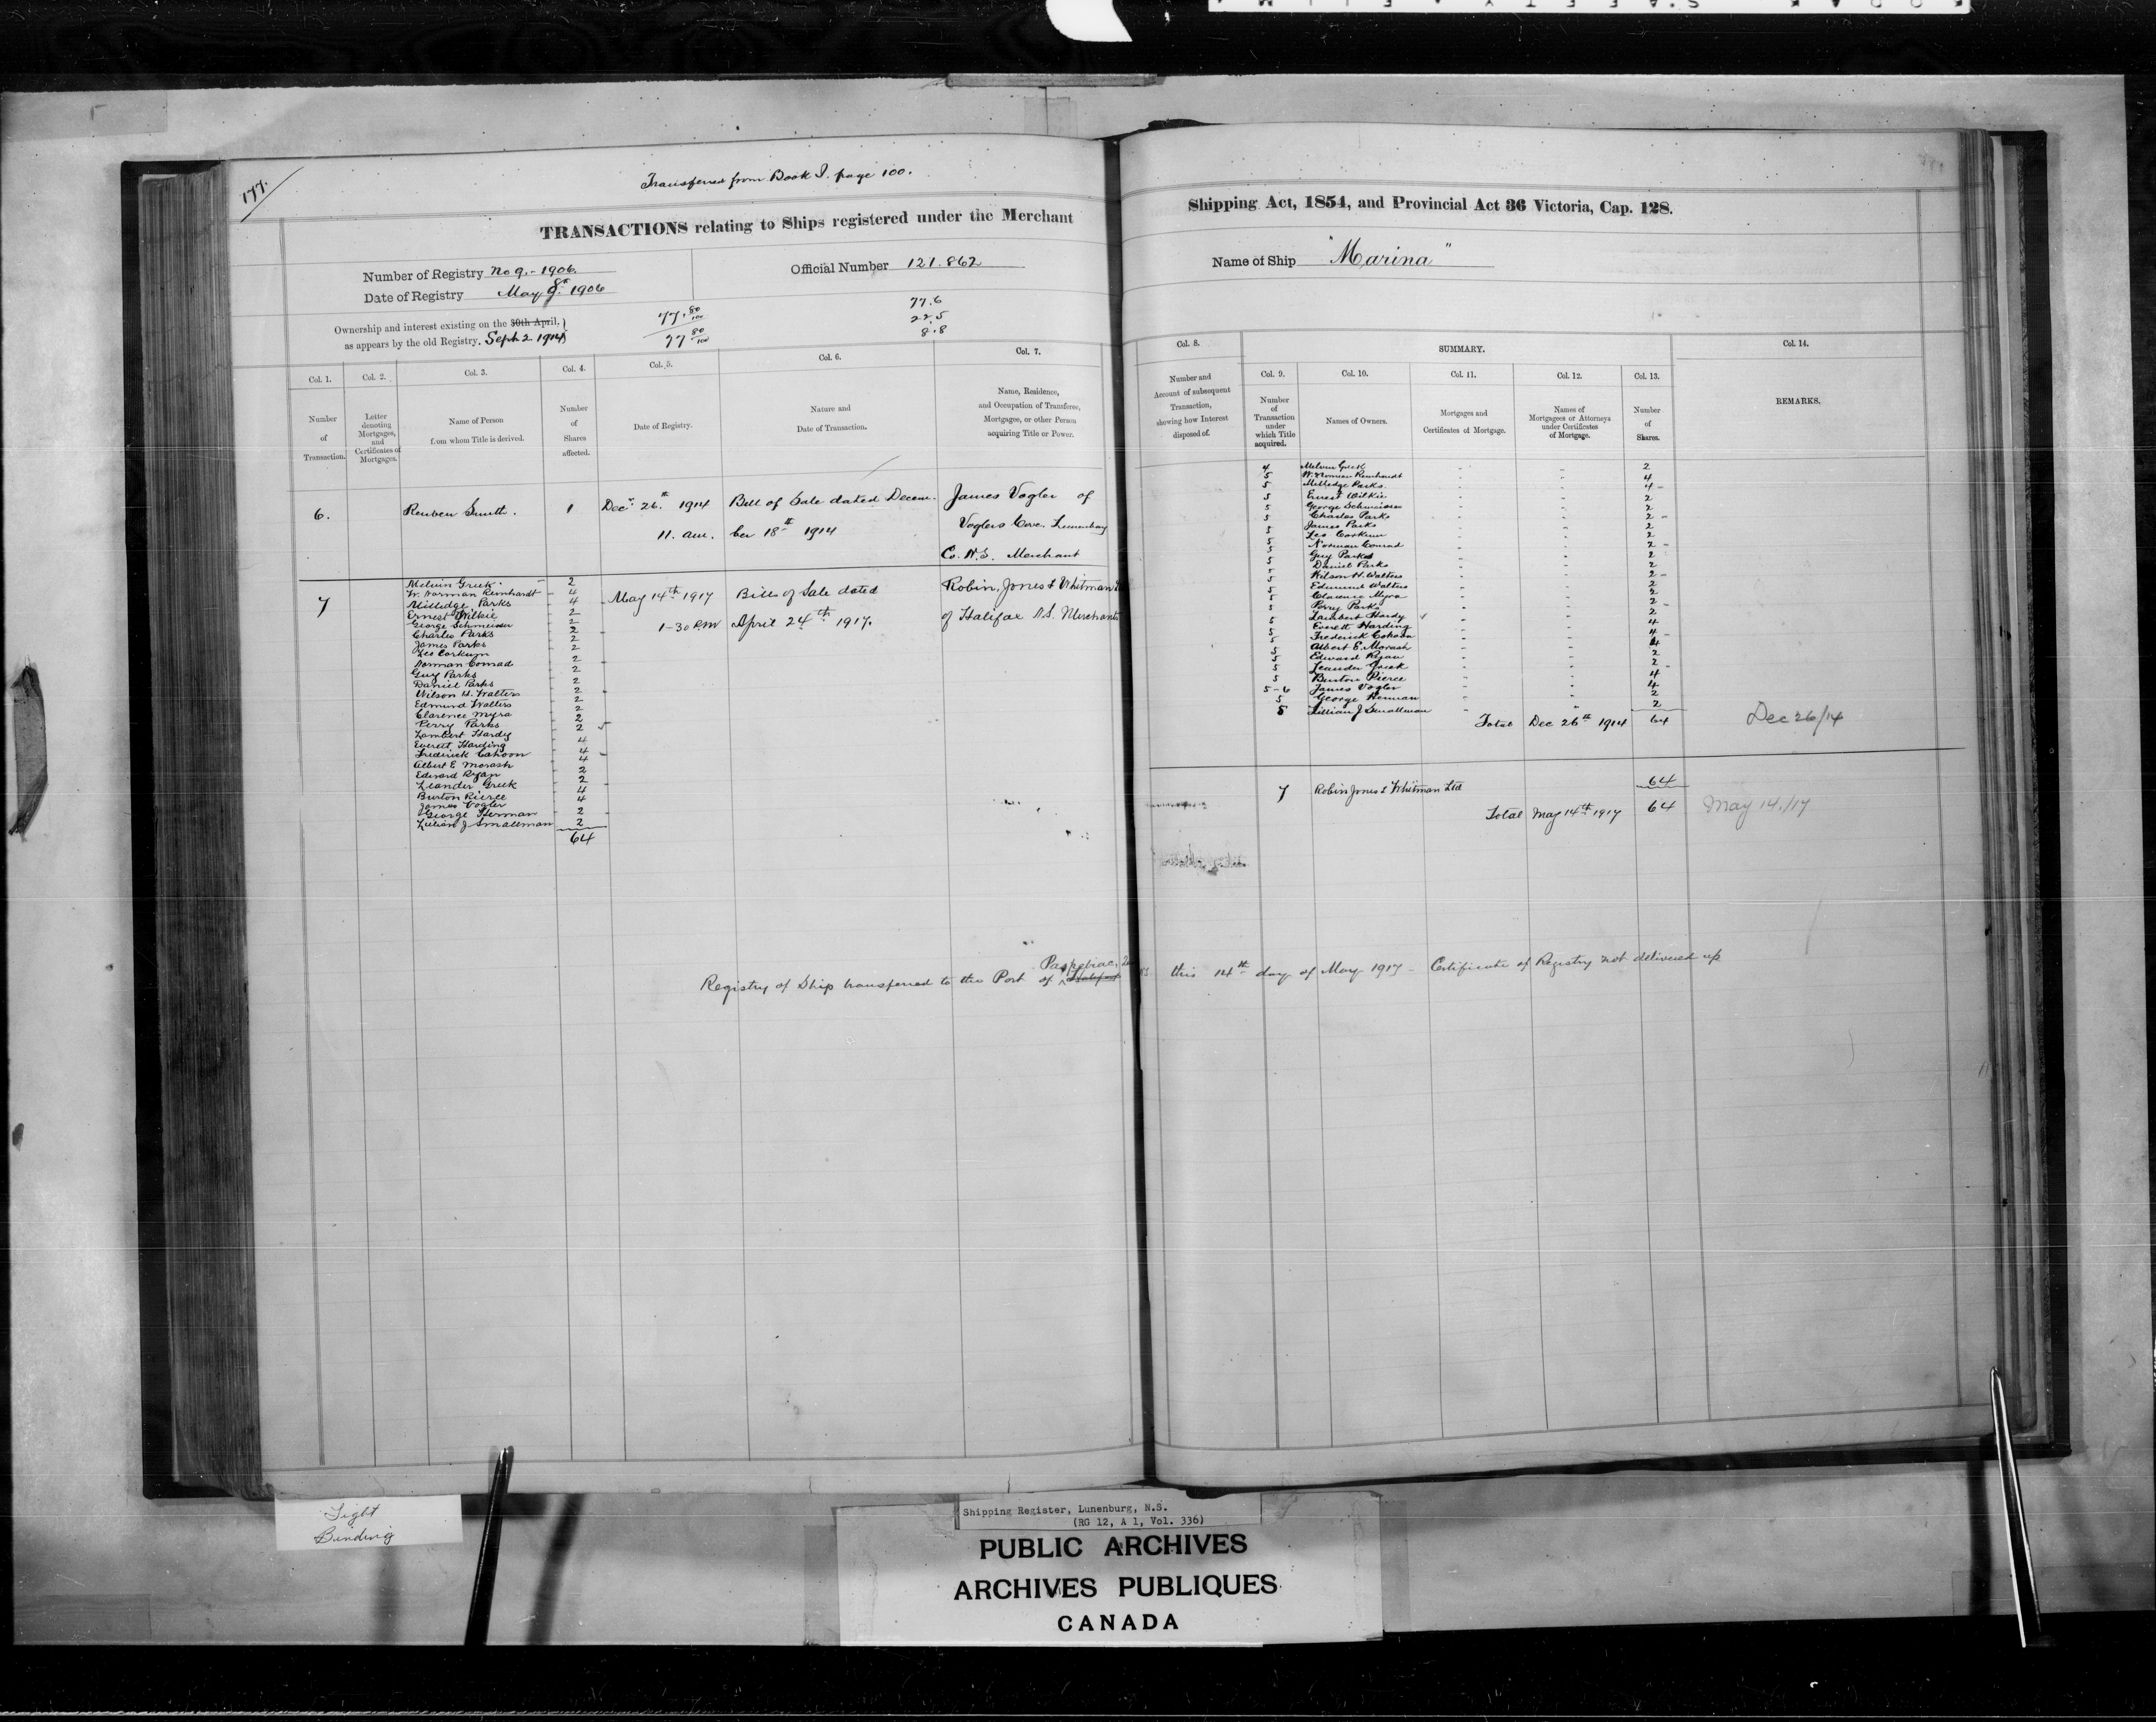 177.
Transferred from Book I. page 100.
TRANSACTIONS relating to Ships registered under the Merchant
Shipping Act, 1854, and Provincial Act 36 Victoria, Cap. 128.
Number of Registry No 9.- 1906.
Date of Registry May 1906
Official Number 121.862
Name of Ship "Marina"
Ownership and interest existing on the 30th April,
as appears by the old Registry. Sept 2 1914
77. 80/100
77 80/100
77.6
22.5
8.8
Col. 1.
Number
of
Transaction.
Col. 2.
Letter
denoting
Mortgages,
and
Certificates of
Mortgages.
Col. 3.
Name of Person
from whom Title is derived.
Col. 4.
Number
of
Shares
affected.
Col. 5.
Date of Registry.
Col. 6.
Nature and
Date of Transaction.
Col. 7.
Name, Residence,
and Occupation of Transferee,
Mortgagee, or other Person
acquiring Title or Power.
Col. 8.
Number and
Account of subsequent
Transaction,
showing how Interest
disposed of.
SUMMARY.
Col. 9.
Number
of
Transaction
under
which Title
acquired.
Col. 10.
Names of Owners.
Col. 11.
Mortgages and
Certificates of Mortgage.
Col. 12.
Names of
Mortgagees or Attorneys
under Certificates
of Mortgage.
Col. 13.
Number
of
Shares.
Col. 14.
REMARKS.
6. Reuben Smith. 1 Decr 26th 1914 Bill of Sale dated Decem- James Vogler of
11. am. ber 18th 1914 Voglers Cove. Lunenburg
Co. N.S. Merchant
7 May 14th 1917 Bills of Sale dated Robin, Jones & Whitman
1-30 PM April 24th 1917. of Halifax N.S. Merchants
Melvin Greek 2
W. Norman Reinhardt 4
Milledge Parks 4
Ernest Wilkie 2
George Schmeisser 2
Charles Parks 2
James Parks 2
Leo Corkum 2
Norman Conrad 2
Guy Parks 2
Daniel Parks 2
Wilson H. Walters 2
Edmund Walters 2
Clarence Myra 2
Perry Parks 2
Lambert Hardy 2
Everett Harding 4
Frederick Cahoon 4
Albert E. Morash 4
Edward Ryan 2
Leander Greek 2
Burton Pierce 4
James Vogler 4
George Herman 2
Lillian J Smallman 2
64
4 Melvin Greek 2
5 W. Norman Reinhardt 4
5 Milledge Parks 4
5 Ernest Wilkie 2
5 George Schmeisser 2
5 Charles Parks 2
5 James Parks 2
5 Leo Corkum 2
5 Norman Conrad 2
5 Guy Parks 2
5 Daniel Parks 2
5 Wilson H. Walters 2
5 Edmund Walters 2
5 Clarence Myra 2
5 Perry Parks 2
5 Lambert Hardy 2
5 Everett Harding 4
5 Frederick Cohoon 4
5 Albert E. Morash 4
5 Edward Ryan 2
5 Leander Greek 2
5 Burton Pierce 4
5-6 James Vogler 4
5 George Herman 2
5 Lillian J Smallman 2
Total Dec 26th 1914 64 Dec 26/14
7 Robin Jones & Whitman Ltd 64
Total May 14th 1917 64 May 14./17
Paspebiac,
Registry of Ship transferred to the Port of Halifax this 14th day of May 1917 - Certificate of Registry not delivered up
Tight
Binding
Shipping Register, Lunenburg, N.S.
(RG 12, A 1, Vol. 336)
PUBLIC ARCHIVES
ARCHIVES PUBLIQUES
CANADA